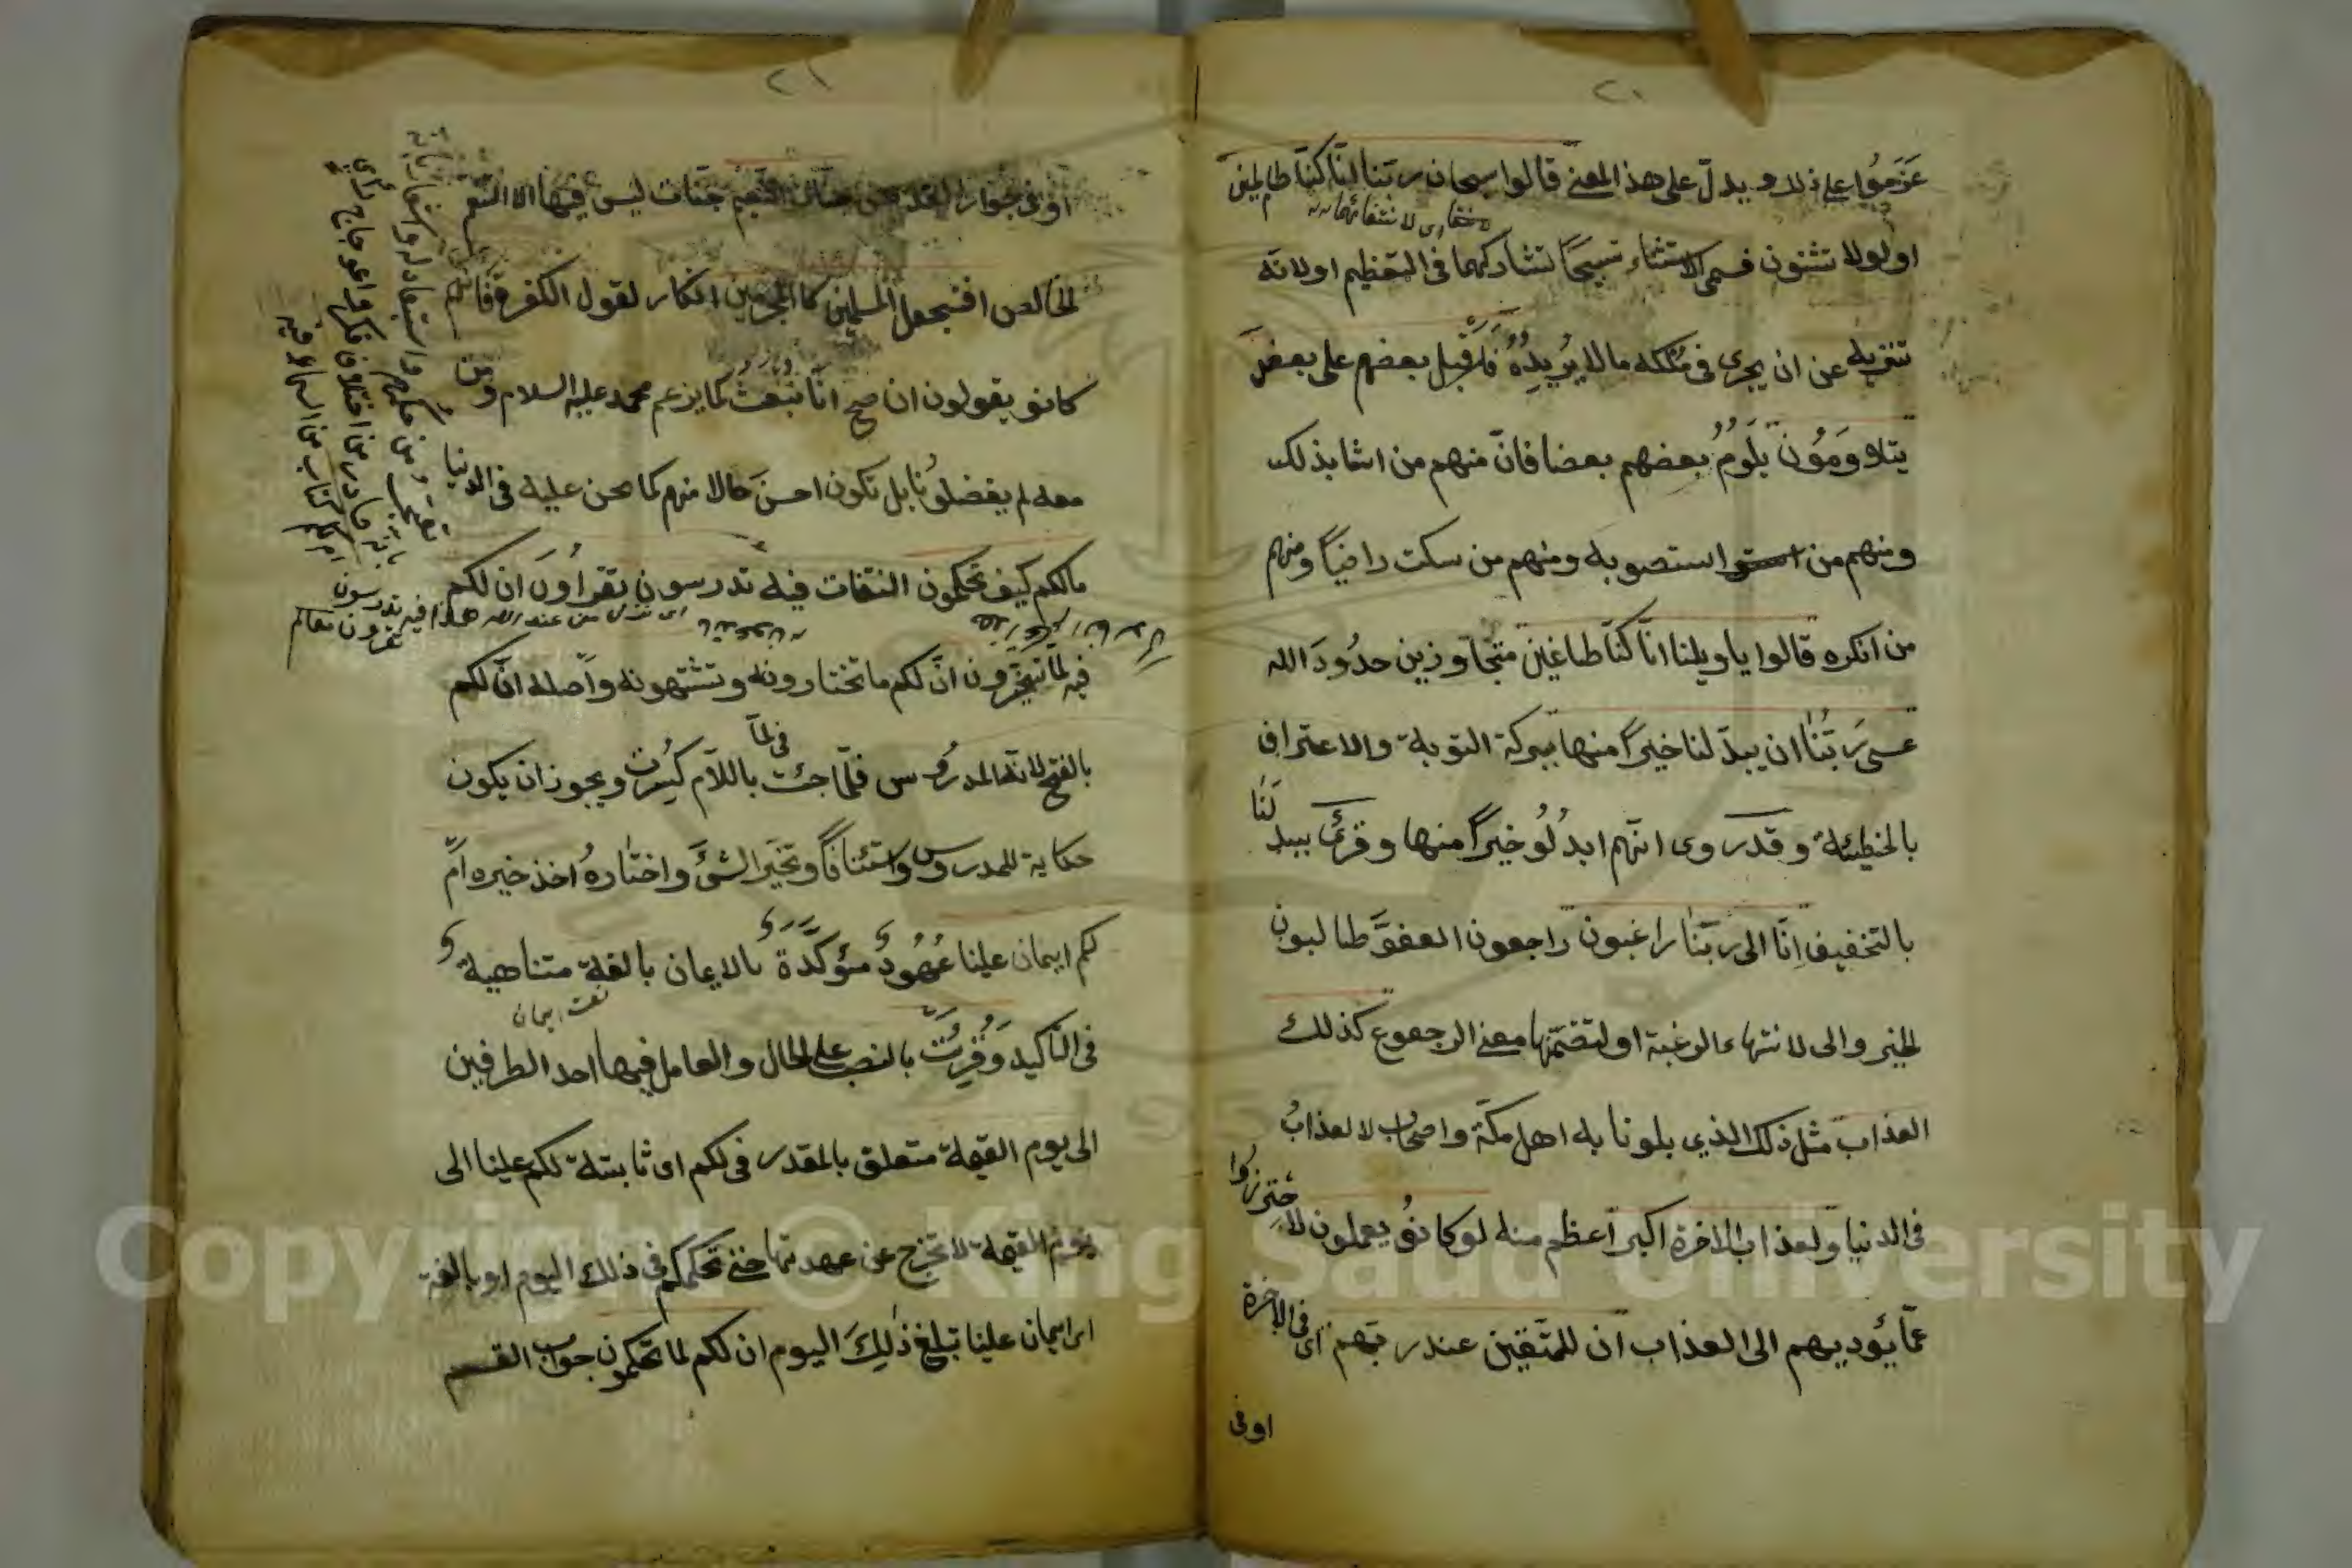 ٢٠
عَزَمُوا على ذلك ويدلّ على هذا المعنى قالوا سبحان ربّنا انّا كنّا ظالمين
اولولا تثنون فسمى الاستثناء تسبيحًا لتشاركهما فى التعظيم او لانّه
تنزيه عن ان يجرى فى ملكه ما لا يُريدُهُ فاقبل بعضهم على بعض
يتلاوَمُونَ يَلُومُ بعضهم بعضا فانّ منهم من اشار بذلك
ومنهم من استصوبه ومنهم من سكت راضيًا ومنهم
من انكره قالوا يا ويلنا انّا كنّا طاغين متجاوزين حدُودَ الله
عسى رَبُّنَا ان يبدّلنا خيرًا منها ببركة التوبة والاعتراف
بالخطيئة وقد روى انّهم ابدلُوا خيرًا منها وقرئ يبدلَنَا
بالتخفيف اِنّا الى ربّنا راغبون راجعون العفوَ طالبون
الخير والى لانتهاء الرغبة او لتضمّنها معنى الرجوع كذلك
العذاب مثل ذلك الذي بلونا به اهل مكّة واصحاب العذابُ
فى الدنيا ولعذاب الآخرة اكبر اعظم منه لو كانوُا يعملون لاحترزوا
عمّا يؤديهم الى العذاب ان للمتّقين عند ربّهم اى فى الآخرة
او فى
٢١
او فى جوار القدس جنّات النّعيم جنّات ليس فيها الا التنعّم
الخالص افنجعل المسلمين كالمجرمين انكار لقول الكفرة فانّهم
كانوا يقولون ان صحّ انّا نبعث كما يزعم محمد عليه السلام ومن
معه لم يفضلُونا بل نكون احسنَ حالا منهم كما نحن عليه فى الدنيا
مالكم كيف تحكمون التفات فيه تدرسون تقرأونَ ان لكم
فيه لما تخيّرون انّ لكم ما تختارونه وتشتهونه واصله انّ لكم
بالفتح لانّه المدرُوس فلمّا جئت باللاّم كُسِرت ويجوز ان يكون
فى لمّا
حكاية للمدروس واستئنافًا وتخيّر الشئ واختارهُ اخذ خيره امْ
لكم ايمان علينا عُهُودٌ مؤكَّدَةٌ بالايمان بالغة متناهية
نعت ايمان
فى التّاكيد وَقُرِئَتْ بالنصب على الحال والعامل فيها احد الطرفين
الى يوم القيمة متعلق بالمقدر فى لكم اى ثابتة لكم علينا الى
يوم القيمة لا تخرج عن عهدتها حتى نحكمكم فى ذلك اليوم او بالغة
اى ايمان علينا تبلغ ذٰلِكَ اليوم ان لكم لما تحكمون جواب القسم
Copyright © King Saud University